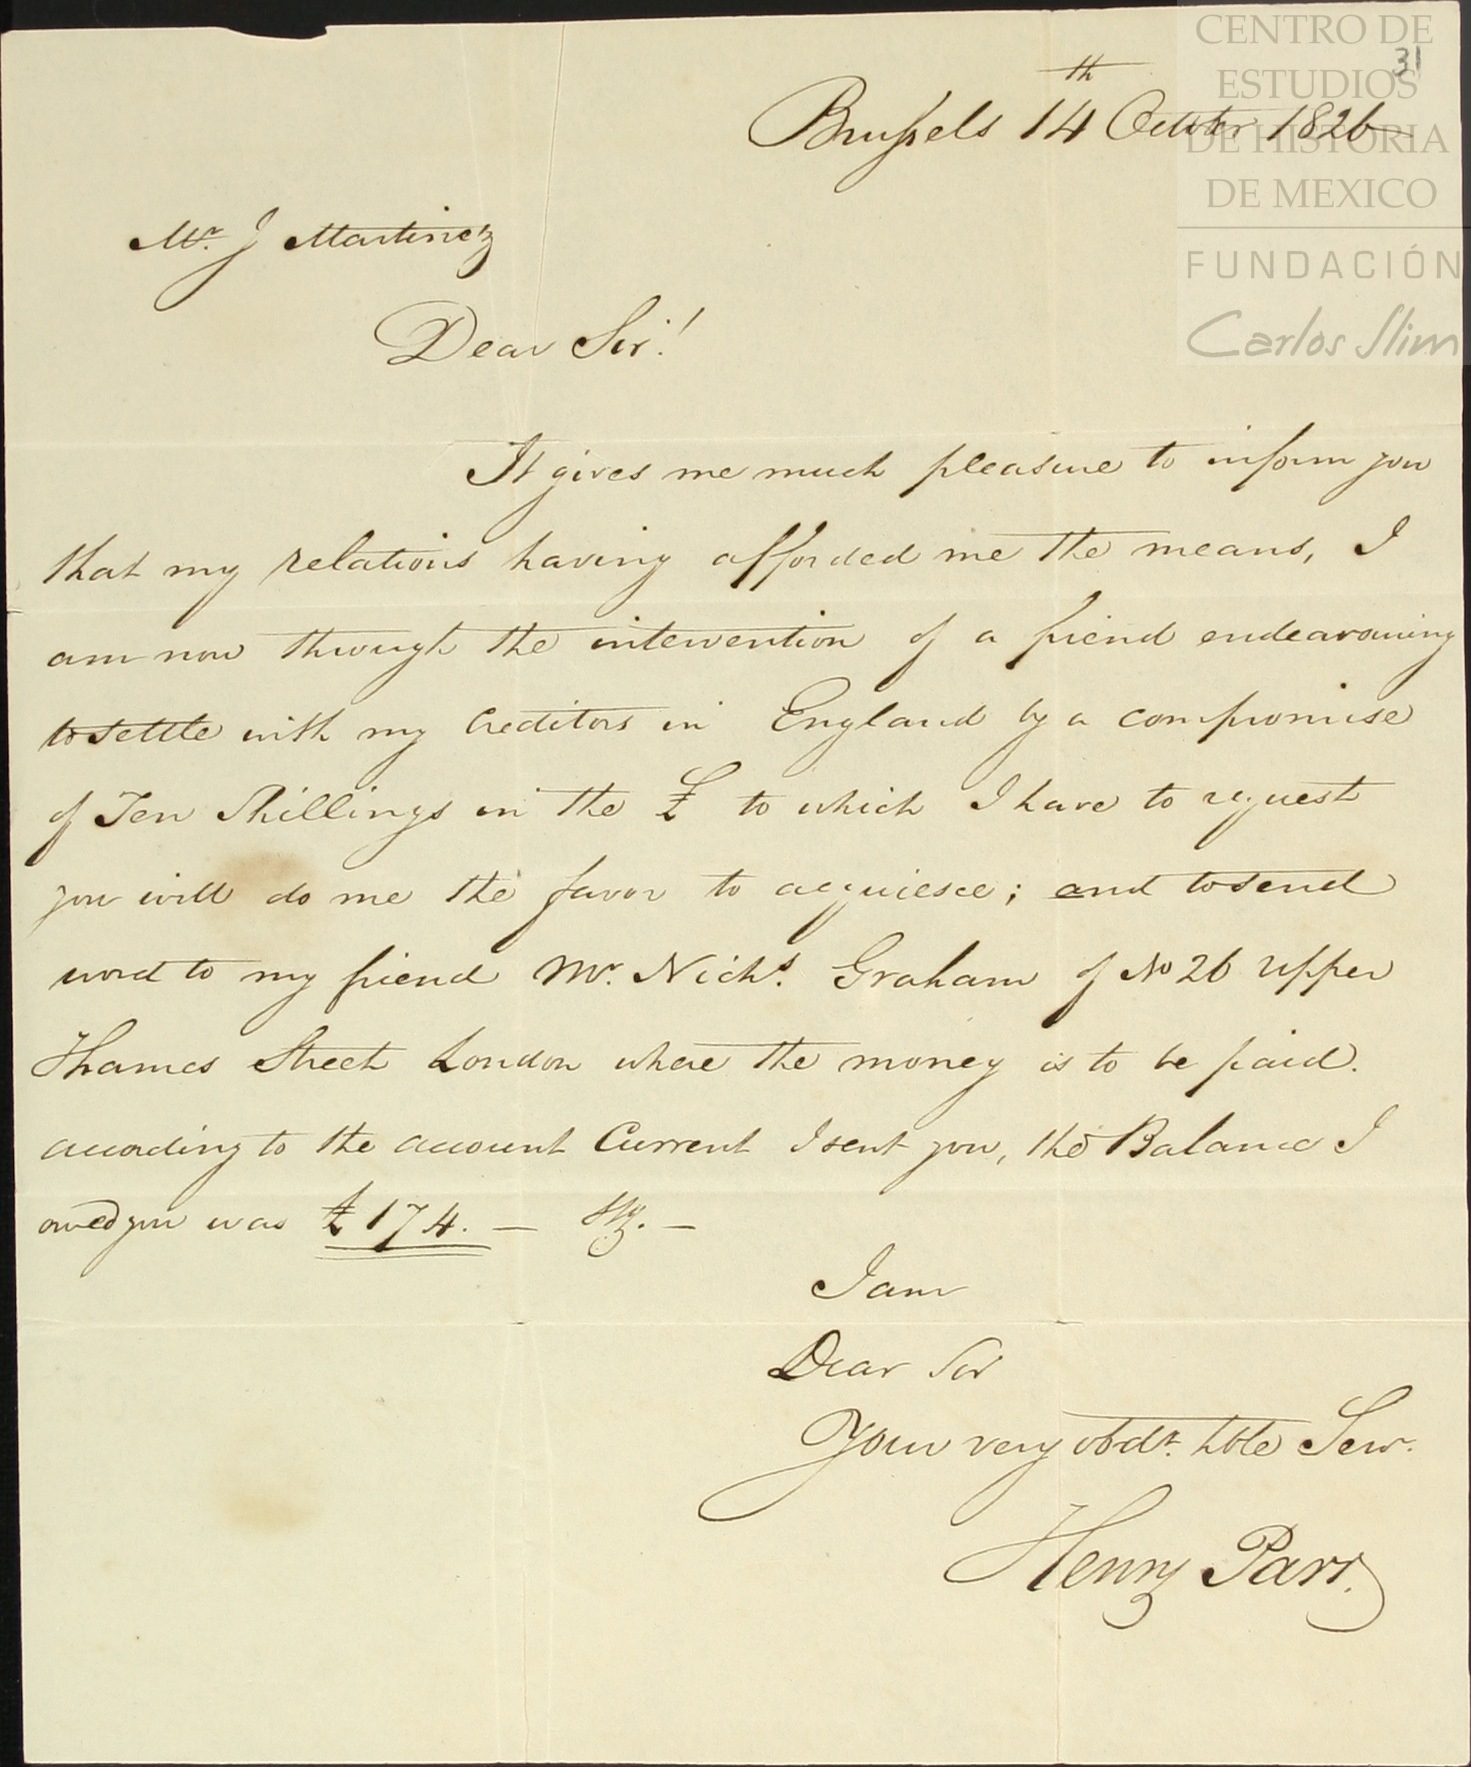 CENTRO DE
31
ESTUDIOS
DE HISTORIA
DE MEXICO
FUNDACIÓN
Carlos Slim
Brussels 14th October 1826
Mr. J Martinez
Dear Sir!
It gives me much pleasure to inform you
that my relations having afforded me the means, I
am now through the intervention of a friend endeavouring
to settle with my Creditors in England by a compromise
of Ten Shillings in the £ to which I have to request
you will do me the favor to acquiesce; and to send
word to my friend Mr. Nichs. Graham of No 26 Upper
Thames Street London where the money is to be paid.
according to the account Current I sent you, the Balance I
owed you was £174. — Stg. —
I am
Dear Sir
Your very obdt. hble Serv.
Henry Parr.